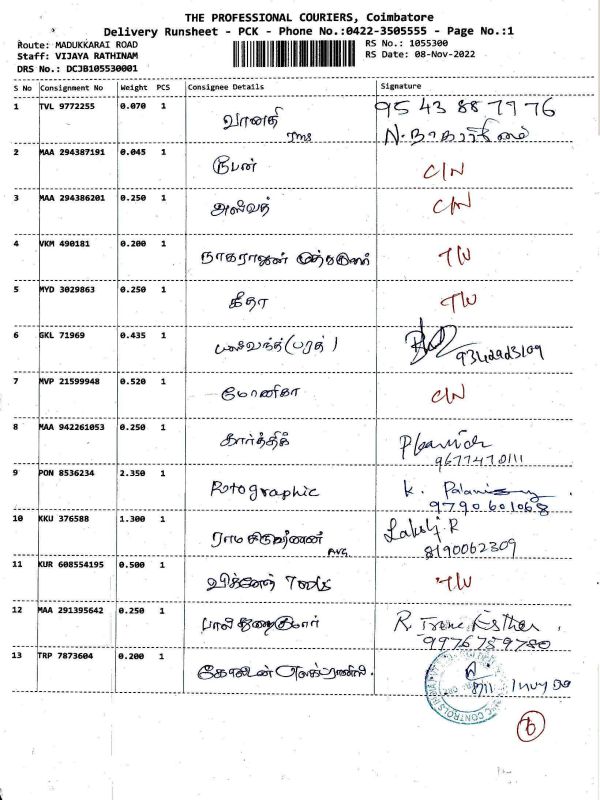 THE PROFESSIONAL COURIERS, Coimbatore
Delivery Runsheet - PCK - Phone No.:0422-3505555 - Page No.:1
Route: MADUKKARAI ROAD
Staff: VIJAYA RATHINAM
DRS No.: DCJB105530001
RS No.: 1055300
RS Date: 08-Nov-2022
S No Consignment No Weight PCS Consignee Details Signature
1 TVL 9772255 0.070 1 வானதி 95 43 887976
2 MAA 294387191 0.045 1 C/N
3 MAA 294386201 0.250 1 C/N
4 VKM 490181 0.200 1 நாகராஜன் T/U
5 MYD 3029863 0.250 1 கீதா T/U
6 GKL 71969 0.435 1 (பரத்)
7 MVP 21599948 0.520 1 மோனிகா C/N
8 MAA 942261053 0.250 1 கார்த்திக்
9677470111
9 PON 8536234 2.350 1 Rotographic K.
9790601068
10 KKU 376588 1.300 1 AVG. R
8190062309
11 KUR 608554195 0.500 1 T/U
12 MAA 291395642 0.250 1 R. Esther
9976759780
13 TRP 7873604 0.200 1